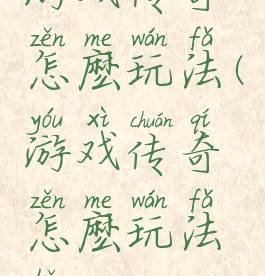 zěn me wán fǎ
怎麼玩法(
yóu xì chuán qí
游戏传奇
zěn me wán fǎ
怎麼玩法